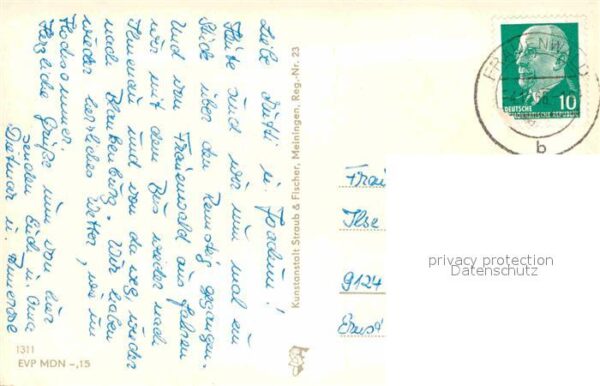 Liebe Mutti u. Joachim!
Heute sind wir nun mal ein
Stück über den Rennsteig gegangen.
Und von Frauenwald aus fahren
wir mit dem Bus wieder nach
Ilmenau und von da weg wieder
nach Blankenburg. Wir haben
wieder herrliches Wetter, wie im
Hochsommer.
Herzliche Grüße nun von hier
senden Euch u. Oma
Dietmar u. Annerose
1311
EVP MDN -,15
Kunstanstalt Straub & Fischer, Meiningen, Reg.-Nr. 23
FRAUENWALD
b
DEUTSCHE
DEMOKRATISCHE REPUBLIK
10
Ilse
9124
Ernst
privacy protection
Datenschutz